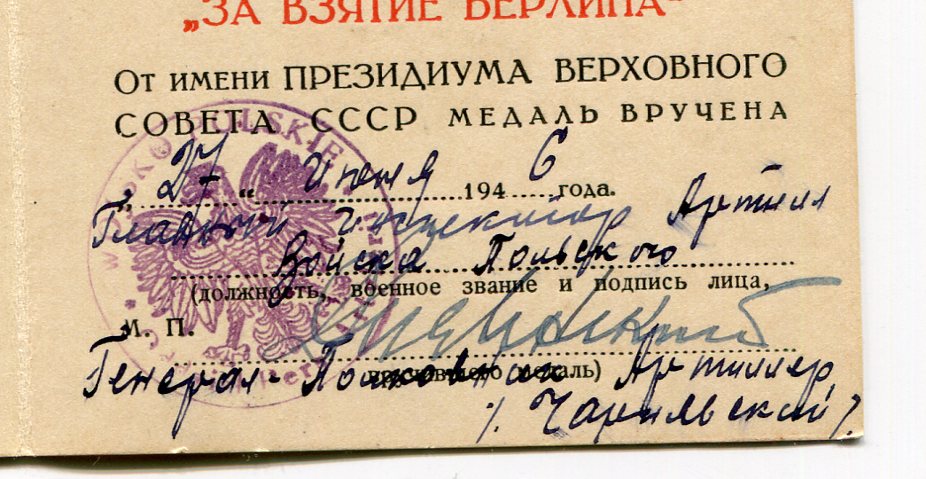 „ЗА ВЗЯТИЕ БЕРЛИНА“
От имени ПРЕЗИДИУМА ВЕРХОВНОГО
СОВЕТА СССР МЕДАЛЬ ВРУЧЕНА
„27“ июня 1946 года.
Главный инспектор Артилл
Войска Польского
(должность, военное звание и подпись лица,
М. П.
вручившего медаль)
Генерал-Полковник Артиллер
POLSKIE